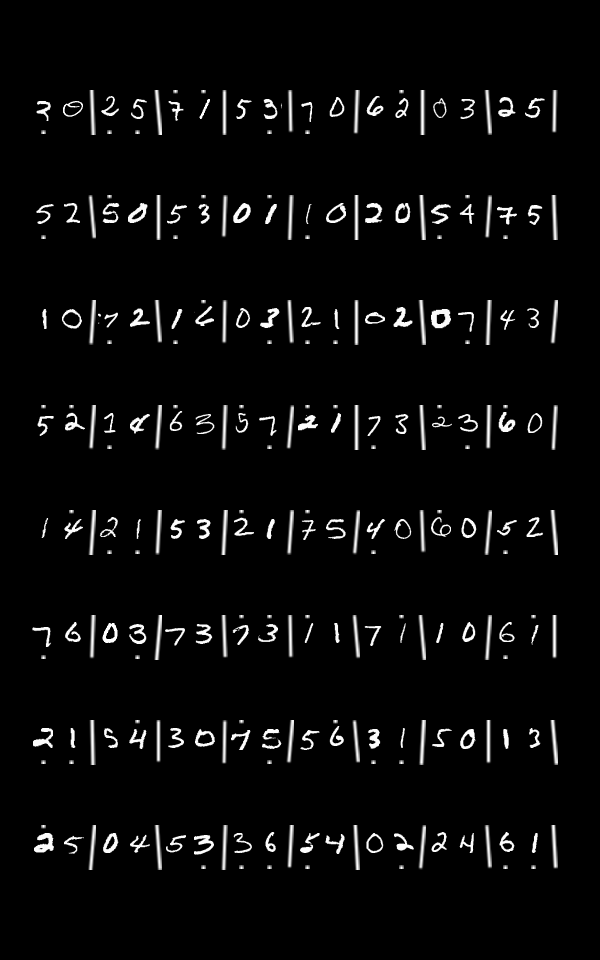 3 0 | 2 5 | 7 1 | 5 3 | 7 0 | 6 2 | 0 3 | 2 5 |
5 2 | 5 0 | 5 3 | 0 1 | 1 0 | 2 0 | 5 4 | 7 5 |
1 0 | 7 2 | 1 6 | 0 3 | 2 1 | 0 2 | 0 7 | 4 3 |
5 2 | 1 4 | 6 3 | 5 7 | 2 1 | 7 3 | 2 3 | 6 0 |
1 4 | 2 1 | 5 3 | 2 1 | 7 5 | 4 0 | 6 0 | 5 2 |
7 6 | 0 3 | 7 3 | 7 3 | 1 1 | 7 1 | 1 0 | 6 1 |
2 1 | 5 4 | 3 0 | 7 5 | 5 6 | 3 1 | 5 0 | 1 3 |
2 5 | 0 4 | 5 3 | 3 6 | 5 4 | 0 2 | 2 4 | 6 1 |